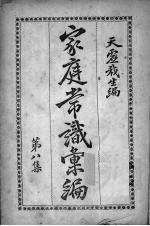 天虛我生編
家庭常識彙編
第八集